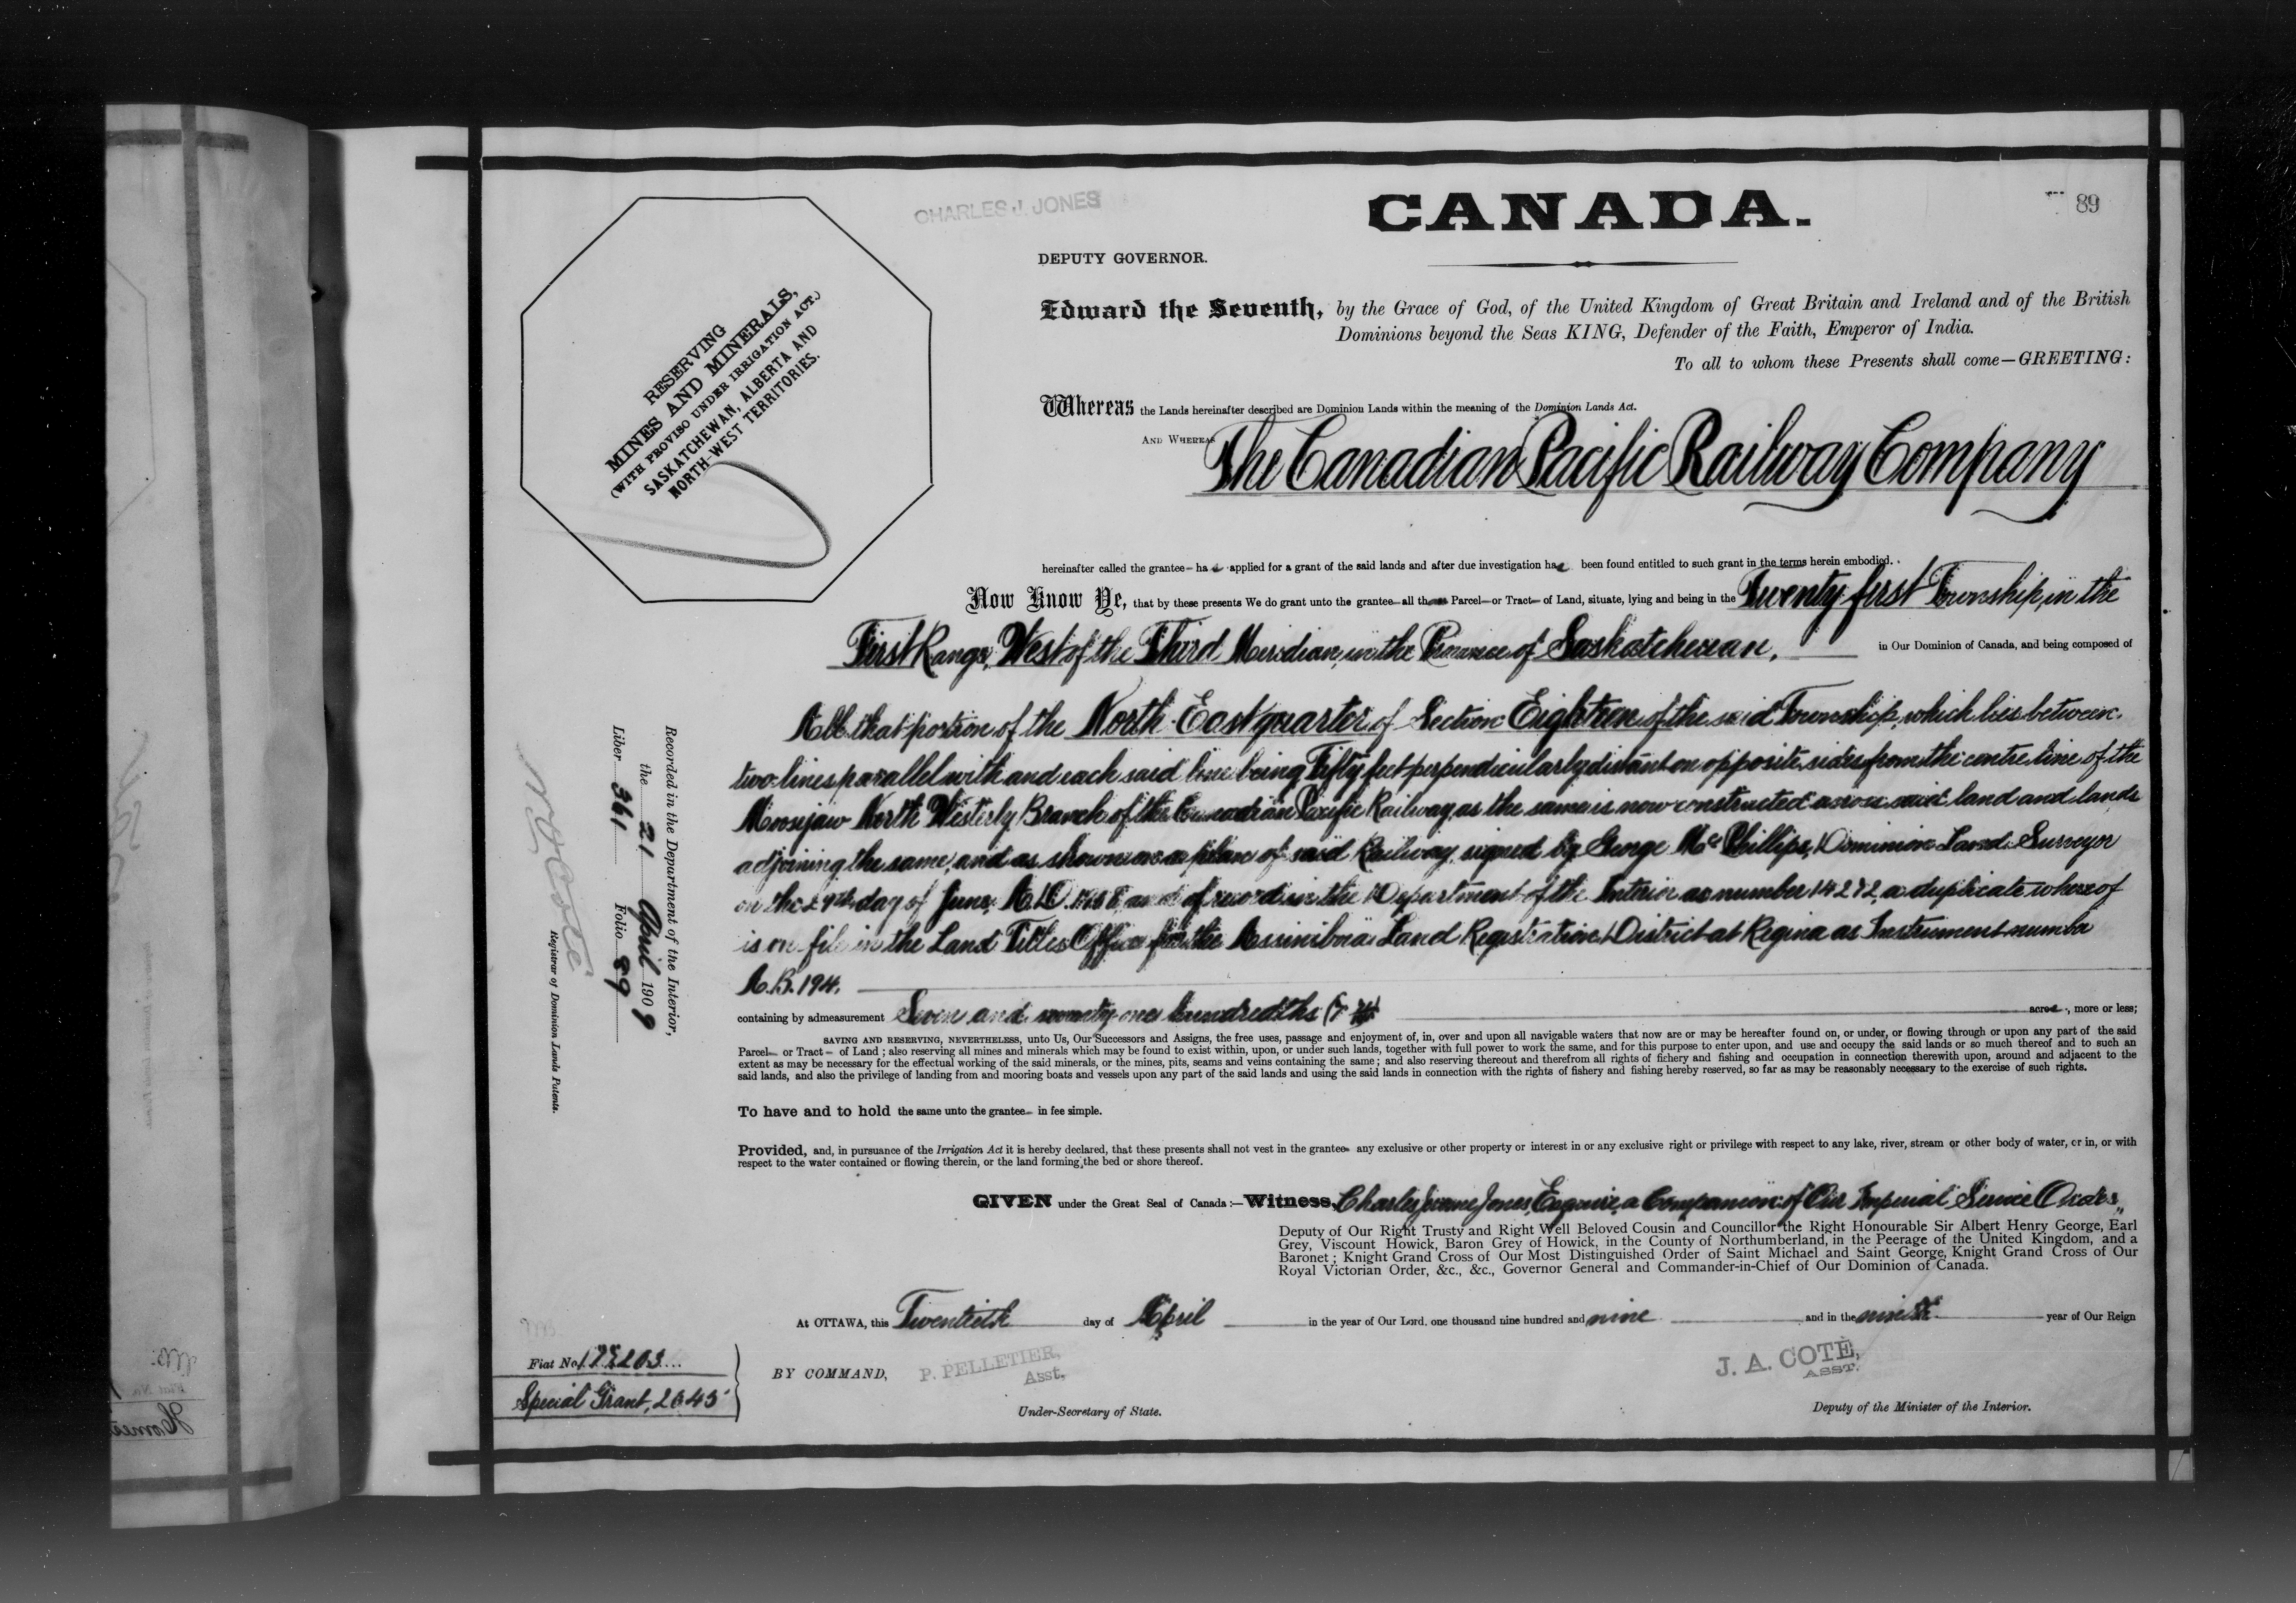 CHARLES J. JONES
CANADA.
89
DEPUTY GOVERNOR.
RESERVING
MINES AND MINERALS,
(WITH PROVISO UNDER IRRIGATION ACT.)
SASKATCHEWAN, ALBERTA AND
NORTH-WEST TERRITORIES.
Edward the Seventh, by the Grace of God, of the United Kingdom of Great Britain and Ireland and of the British
Dominions beyond the Seas KING, Defender of the Faith, Emperor of India.
To all to whom these Presents shall come—GREETING:
Whereas the Lands hereinafter described are Dominion Lands within the meaning of the Dominion Lands Act.
AND WHEREAS The Canadian Pacific Railway Company
hereinafter called the grantee applied for a grant of the said lands and after due investigation been found entitled to such grant in the terms herein embodied.
Now Know Ye, that by these presents We do grant unto the grantee all Parcel or Tract of Land, situate, lying and being in the Twenty first Township, in the
First Range, West of the Third Meridian, in the Province of Saskatchewan, in Our Dominion of Canada, and being composed of
All that portion of the North East quarter of Section Eighteen of the said Township, which lies between
two lines parallel with and each said line being Fifty feet perpendicularly distant on opposite sides from the centre line of the
Moosejaw North Westerly Branch of the Canadian Pacific Railway, as the same is now constructed across said land and lands
adjoining the same, and as shown on a plan of said Railway, signed by George McPhillips, Dominion Land Surveyor
on the day of June, A.D. and of record in the Department of the Interior as number 14272, a duplicate whereof
is on file in the Land Titles Office for the Assiniboia Land Registration District at Regina as Instrument number
A.B. 194.
containing by admeasurement Seven and hundredths acres, more or less;
SAVING AND RESERVING, NEVERTHELESS, unto Us, Our Successors and Assigns, the free uses, passage and enjoyment of, in, over and upon all navigable waters that now are or may be hereafter found on, or under, or flowing through or upon any part of the said
Parcel or Tract of Land; also reserving all mines and minerals which may be found to exist within, upon, or under such lands, together with full power to work the same, and for this purpose to enter upon, and use and occupy the said lands or so much thereof and to such an
extent as may be necessary for the effectual working of the said minerals, or the mines, pits, seams and veins containing the same; and also reserving thereout and therefrom all rights of fichery and fishing and occupation in connection therewith upon, around and adjacent to the
said lands, and also the privilege of landing from and mooring boats and vessels upon any part of the said lands and using the said lands in connection with the rights of fishery and fishing hereby reserved, so far as may be reasonably necessary to the exercise of such rights.
To have and to hold the same unto the grantee in fee simple.
Provided, and, in pursuance of the Irrigation Act it is hereby declared, that these presents shall not vest in the grantee any exclusive or other property or interest in or any exclusive right or privilege with respect to any lake, river, stream or other body of water, or in, or with
respect to the water contained or flowing therein, or the land forming the bed or shore thereof.
GIVEN under the Great Seal of Canada:—Witness, Charles Jones, Esquire, a Companion of Our Imperial Service Order,
Deputy of Our Right Trusty and Right Well Beloved Cousin and Councillor the Right Honourable Sir Albert Henry George, Earl
Grey, Viscount Howick, Baron Grey of Howick, in the County of Northumberland, in the Peerage of the United Kingdom, and a
Baronet; Knight Grand Cross of Our Most Distinguished Order of Saint Michael and Saint George, Knight Grand Cross of Our
Royal Victorian Order, &c., &c., Governor General and Commander-in-Chief of Our Dominion of Canada.
At OTTAWA, this Twentieth day of April in the year of Our Lord, one thousand nine hundred and nine and in the ninth year of Our Reign
BY COMMAND, P. PELLETIER,
Asst,
Under-Secretary of State.
J. A. COTÉ,
ASST.
Deputy of the Minister of the Interior.
Fiat No.
Special Grant, 2645
Recorded in the Department of the Interior,
the 21 April 1909
Liber 361 Folio 89
N O Coté
Registrar of Dominion Lands Patents.